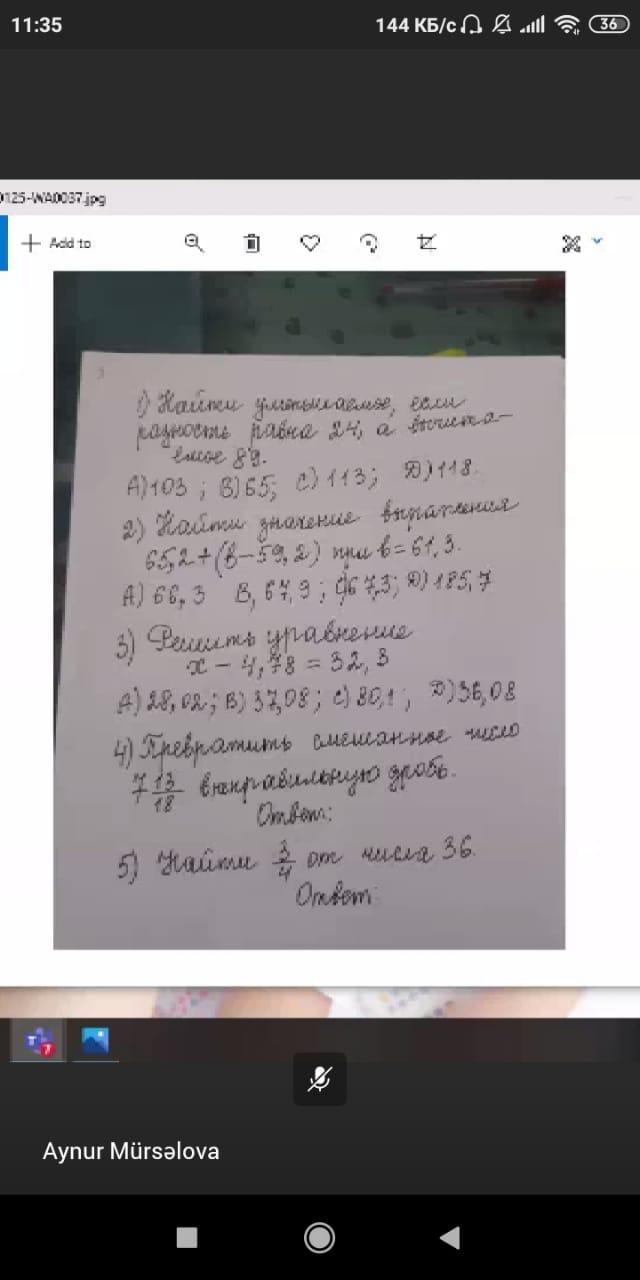 11:35 144 КБ/с 36
0125-WA0037.jpg
Add to
1) Найти уменьшаемое, если
разность равна 24, а вычита-
емое 89.
A) 103 ; B) 65; C) 113; D) 118.
2) Найти значение выражения
65,2+(в-59,2) при в=61,3.
A) 66,3 B, 67,9 ; C) 67,3; D) 185,7
3) Решить уравнение
x - 4,78 = 32,3
A) 28,02; B) 37,08; C) 80,1; D) 36,08
4) Превратить смешанное число
7 13/18 в неправильную дробь.
Ответ:
5) Найти 3/4 от числа 36.
Ответ:
Aynur Mürsəlova